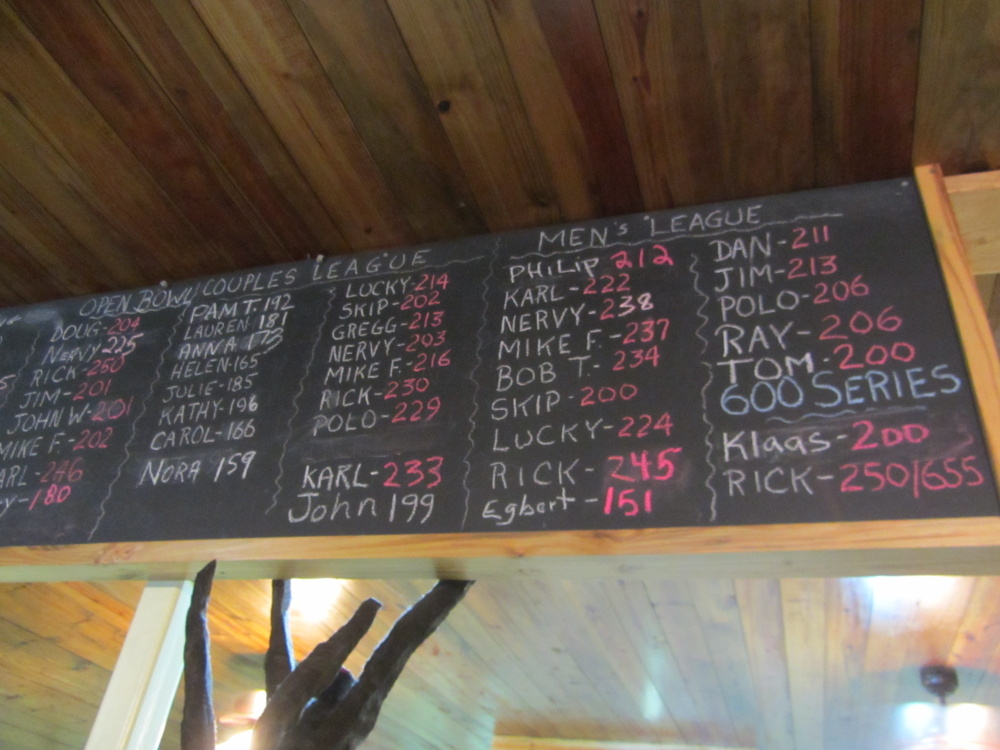 OPEN BOWL/COUPLES LEAGUE
DOUG-204
NERVY-225
RICK-250
JIM-201
JOHN W-201
MIKE F.-202
ARL-246
Y-180
PAM T.192
LAUREN 181
ANNA 173
HELEN-165
JULIE-185
KATHY-196
CAROL-166
NORA 159
LUCKY-214
SKIP-202
GREGG-213
NERVY-203
MIKE F.-216
RICK-230
POLO-229
KARL-233
John 199
MEN's LEAGUE
PHILIP 212
KARL-222
NERVY-238
MIKE F.-237
BOB T.-234
SKIP-200
LUCKY-224
RICK-245
Egbert-151
DAN-211
JIM-213
POLO-206
RAY-206
TOM-200
600 SERIES
Klaas-200
RICK-250/655